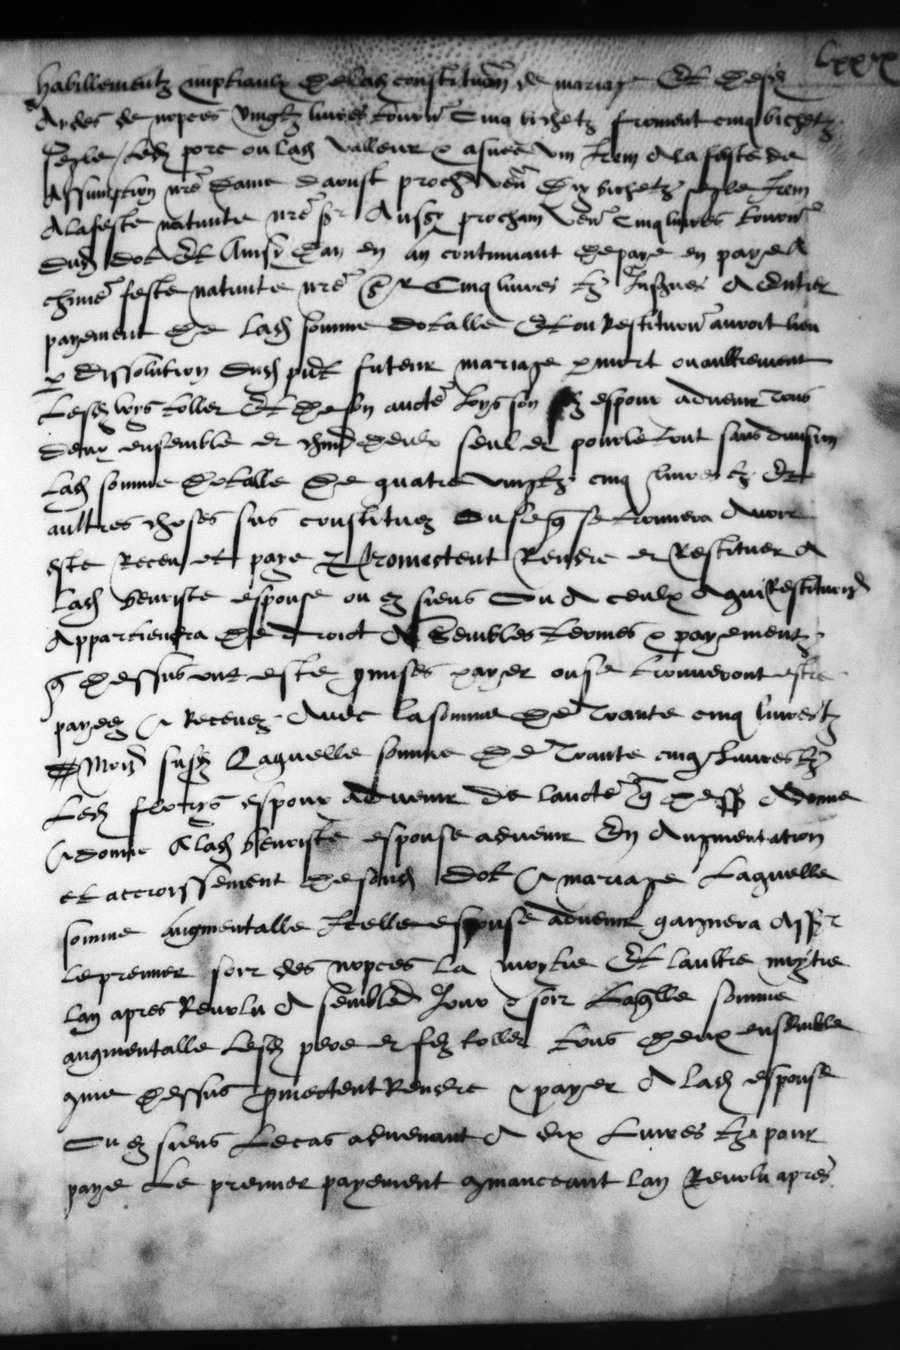 lxxx
habillementz nuptiaulx de lad constitution de mariage Et desd
Ardes de nopces vingtz livres tourn Cinq bichetz froment cinq bichetz
segle led porc ou lad valleur &
Assumption nre dame daoust proch ven Dix bichetz segle
A la feste nativite nre sr Aussy prochain ven Cinq livres tourn
dud dot Et Ainsy dan en an continuant de paye en paye A
chune feste nativite nre sr Cinq livres tz Jusques A Entier
payement de lad somme dotalle Et ou Restitution auroit lieu
p dissolution dud futeur mariage p mort ou aultrement
Lesd loys toller Et de son aucte loys son filz espoux advenir tous
deux ensemble et chund deulx seul et pour le tout sans division
Lad somme dotalle de quatre vingtz cinq livres tz Et
aultres choses sus constituez Ou se q se trouvera Avoir
este Receu et paye promectent Rendre et Restituer A
Lad benoiste espouse ou es siens Ou A ceulx A qui Restitution
Appartiendra de droict A Semblables termes & payementz
q dessus ont este pmises payer ou se trouveront estre
payez & Recevez Avec la somme de Trante cinq livres tz
Monn susd Laquelle somme de Trante cinq Livres tz
Led espoux advenir de laucte q dess A donne
& donne A lad benoiste espouse advenir En Augmentation
et accroissement de sond dot & mariage Laquelle
somme augmentalle Icelle espouse advenir gaignera Assr
Le premier soir des nopces la moytie Et laultre moytie
lan apres Revolu A semblable Jour & soir Laqlle somme
augmentalle Lesd pere et filz toller tous deux ensemble
qme dessus pmectent Rendre & payer A lad espouse
Ou es siens Le cas advenant A dix Livres tz pour
paye Le premier payement qmanceant lan Revolu apres